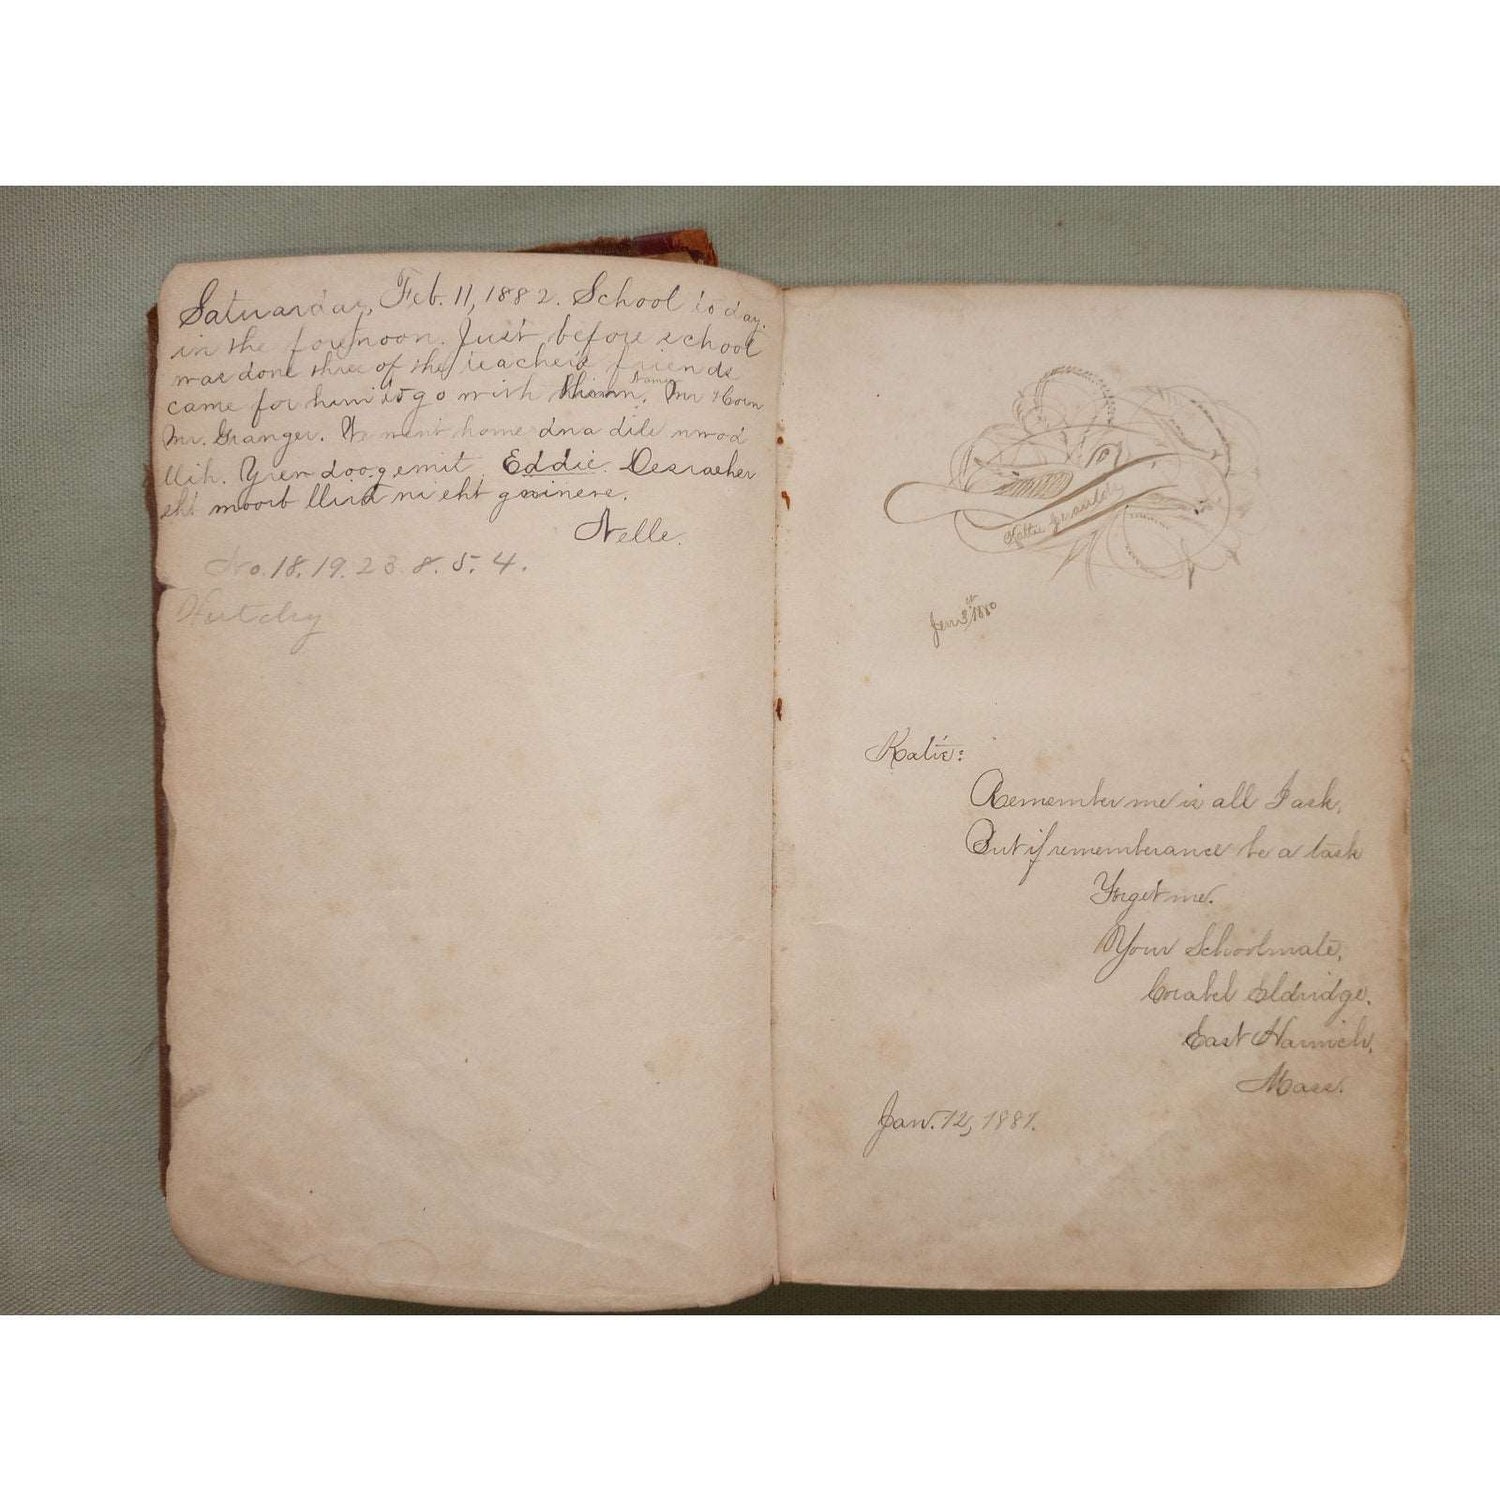 Satuarday, Feb. 11, 1882. School to day.
in the forenoon. Just before school
was done three of the teacher's friends
came for him to go with Mr Horn
Mr. Granger. We went home dna dils nwod
llih. Yrev doog emit. Eddie. Desraeher
eht moorb llird ni eht gnineve.
Nelle.
No. 18. 19. 23. 8. 5. 4.
Katie
Jan 1880
Katie:
Remember me is all I ask,
But if rememberance be a task
Forget me.
Your Schoolmate,
Eldridge.
East Harwich,
Mass.
Jan. 12, 1881.